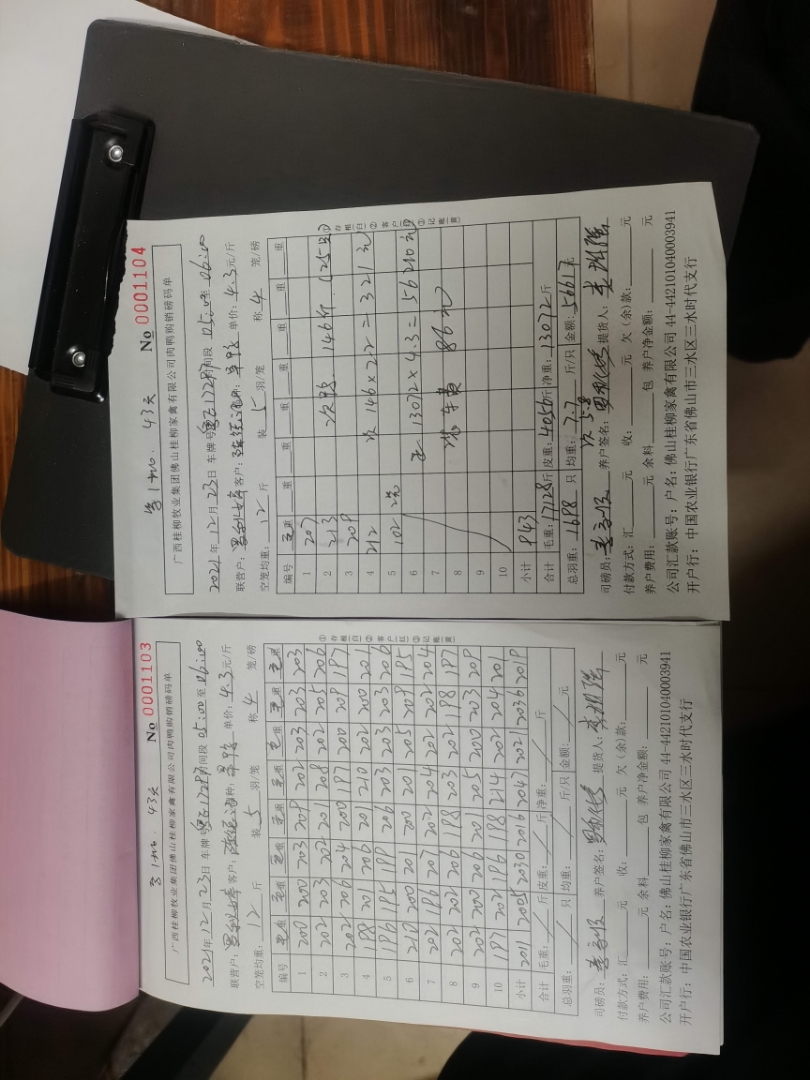 No 0001103
43天
广西桂柳牧业集团佛山桂柳家禽有限公司肉鸭购销磅码单
2021年12月23日 车牌号: 时间段 05:00至06:00
联营户: 客户: 品种: 单价: 4.3元/斤
空笼均重: 12 斤 装 5 羽/笼 称 4 笼/磅
编号 毛重 毛重 毛重 毛重 毛重 毛重 毛重 毛重
1 200 200 203 209 202 203 203 203
2 202 203 202 201 208 202 205 206
3 202 206 204 200 197 200 209 197
4 198 201 206 201 210 202 200 201
5 196 195 199 206 203 203 203 206
6 210 200 201 200 201 205 209 195
7 202 196 207 202 204 202 202 204
8 202 202 206 198 203 202 198 197
9 202 200 206 201 205 200 203 209
10 197 202 196 198 214 202 204 201
小计 2011 2005 2030 2016 2047 2021 2036 2019
合计 毛重: / 斤 皮重: / 斤 净重: / 斤
总羽重: / 只 均重: / 斤/只 金额: / 元
司磅员: 养户签名: 提货人:
付款方式: 汇 元 收: 元 欠(余)款: 元
养户费用: 元 余料 包 养户净金额: 元
公司汇款账号: 户名: 佛山桂柳家禽有限公司 44-442101040003941
开户行: 中国农业银行广东省佛山市三水区三水时代支行
①存根白 ②客户红 ③记账黄
No 0001104
43天
广西桂柳牧业集团佛山桂柳家禽有限公司肉鸭购销磅码单
2021年12月23日 车牌号: 时间段 05:00至06:00
联营户: 客户: 品种: 单价: 4.3元/斤
空笼均重: 12 斤 装 5 羽/笼 称 4 笼/磅
编号 毛重 重 重 重 重 重
1 207
2 213 146斤 (25只)
3 209
4 212 次 146×2.2=321元
5 102 2笼
6 正 13072×4.3=56210元
7
8 装车费 86元
9
10
小计 943
合计 毛重: 17128斤 皮重: 4056斤 净重: 13072斤
总羽重: 1698 只 均重: 7.7 斤/只 金额: 56617元
次 5.8
司磅员: 养户签名: 提货人:
付款方式: 汇 元 收: 元 欠(余)款: 元
养户费用: 元 余料 包 养户净金额: 元
公司汇款账号: 户名: 佛山桂柳家禽有限公司 44-442101040003941
开户行: 中国农业银行广东省佛山市三水区三水时代支行
①存根白 ②客户红 ③记账黄